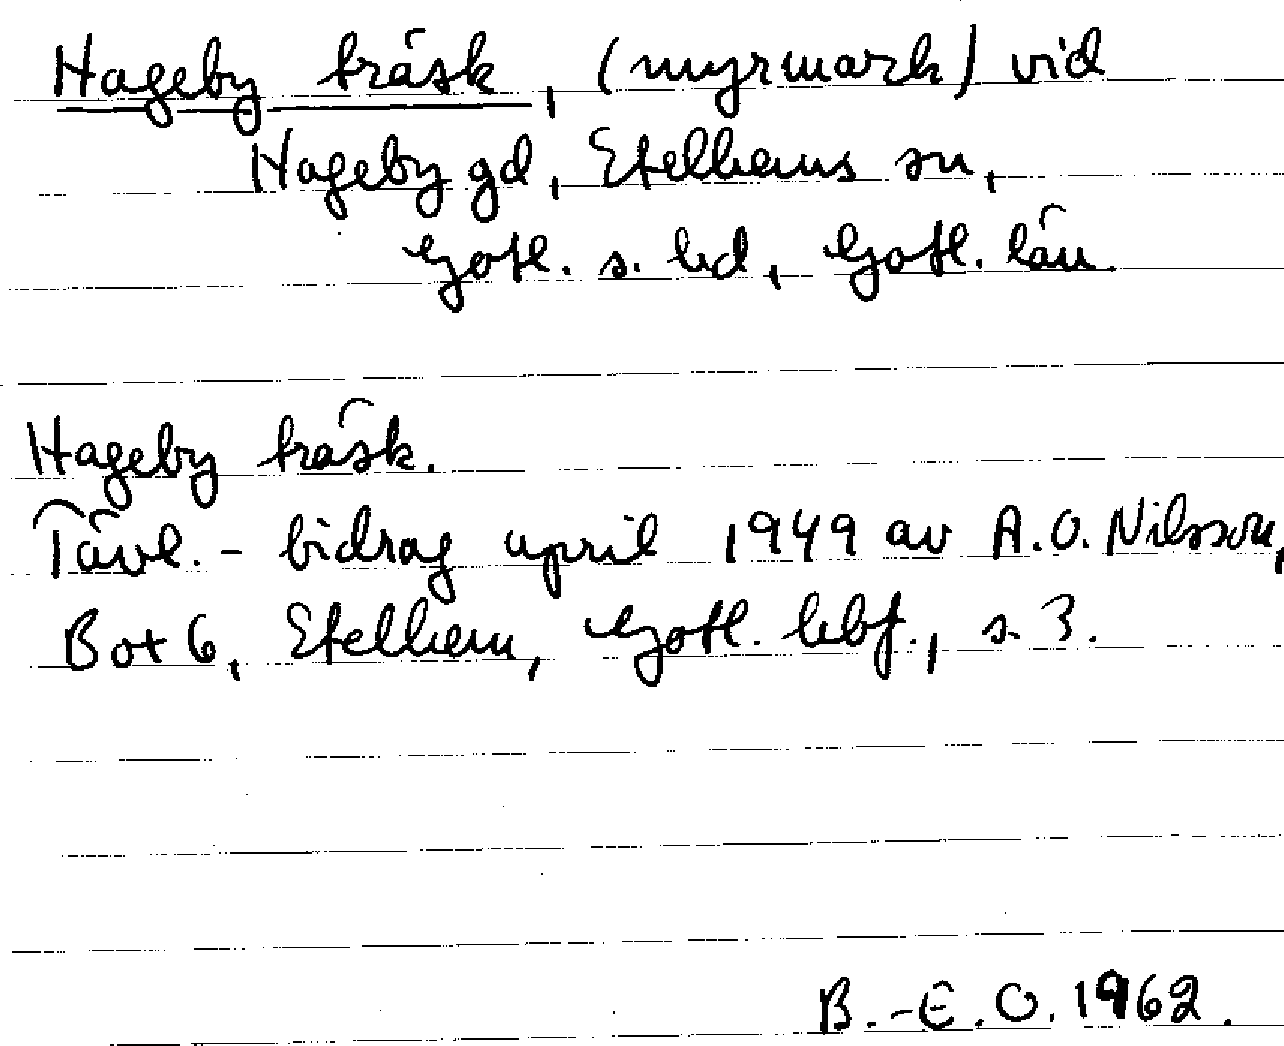 Hageby träsk, (myrmark) vid
Hageby gd, Etelhems sn,
Gotl. s. hd, Gotl. län.
Hageby träsk.
Tävl. - bidrag april 1949 av A.O. Nilsson,
Box 6, Etelhem, Gotl. hbf., s. 3.
B.-E.O. 1962.